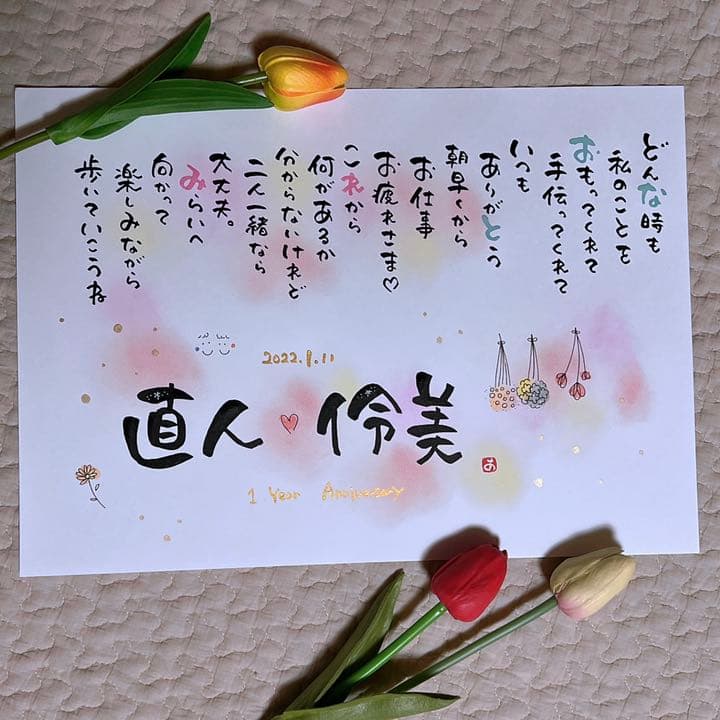 どんな時も
私のことを
おもってくれて
手伝ってくれて
いつも
ありがとう
朝早くから
お仕事
お疲れさま♡
これから
何があるか
分からないけれど
二人一緒なら
大丈夫。
みらいへ
向かって
楽しみながら
歩いていこうね
2022.9.11
直人♡伶美
1 Year Anniversary